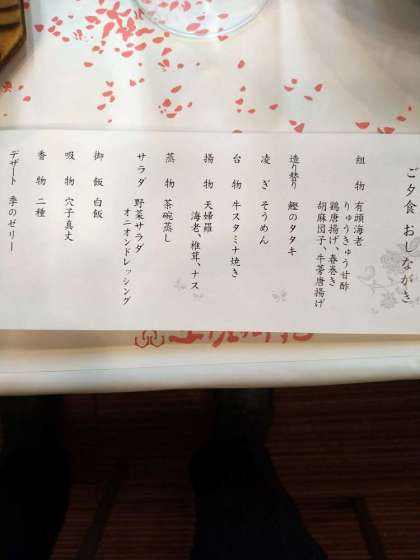 ご夕食 おしながき
組 物 有頭海老
りゅうきゅう甘酢
鶏唐揚げ、春巻き
胡麻団子、牛蒡唐揚げ
造り 鰹のタタキ
凌 ぎ そうめん
台 物 牛スタミナ焼き
揚 物 天婦羅
海老、椎茸、ナス
蒸 物 茶碗蒸し
サラダ 野菜サラダ
オニオンドレッシング
御 飯 白飯
吸 物 穴子真丈
香 物 二種
デザート 季のゼリー